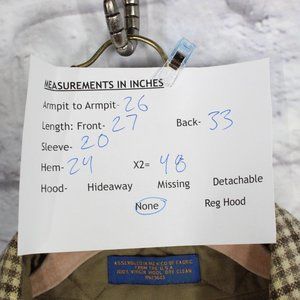 MEASUREMENTS IN INCHES
Armpit to Armpit- 26
Length: Front- 27 Back- 33
Sleeve- 20
Hem- 24 X2= 48
Hood- Hideaway Missing Detachable
None Reg Hood
ASSEMBLED IN MEXICO OF FABRIC
FROM THE U.S.A.
100% VIRGIN WOOL DRY CLEAN